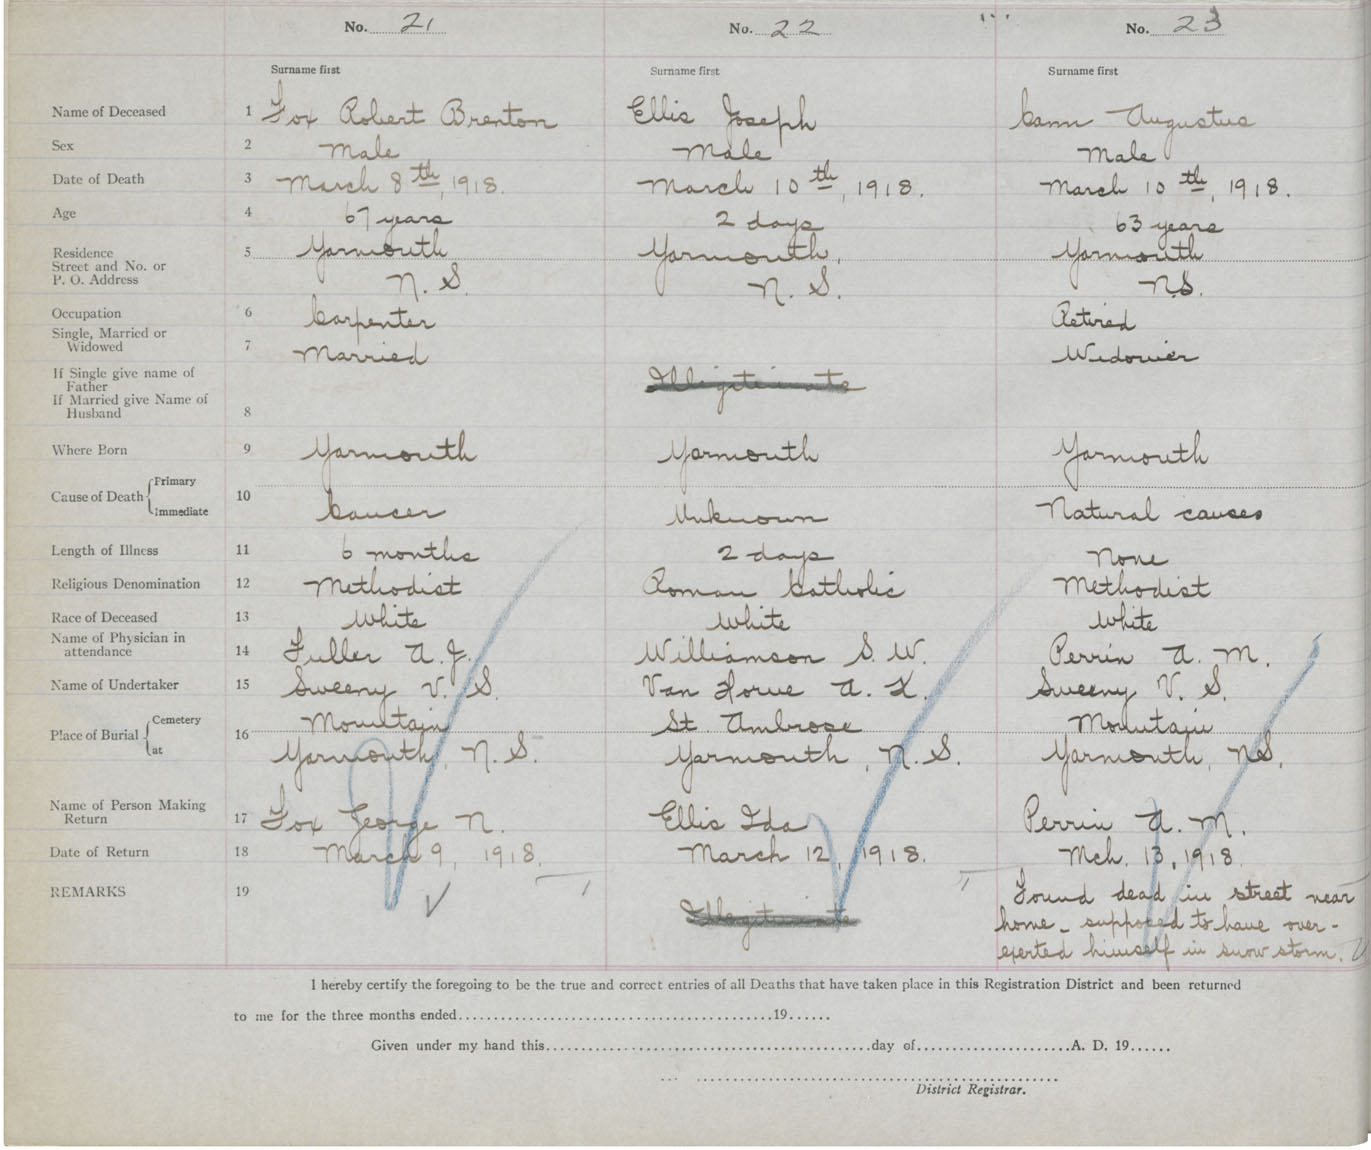 No. 21 No. 22 No. 23
Surname first Surname first Surname first
Name of Deceased 1 Fox Robert Brenton Ellis Joseph Cann Augustus
Sex 2 Male Male Male
Date of Death 3 March 8th, 1918. March 10th, 1918. March 10th, 1918.
Age 4 67 years 2 days 63 years
Residence 5 Yarmouth Yarmouth, Yarmouth
Street and No. or
P. O. Address N. S. N. S. N.S.
Occupation 6 Carpenter Retired
Single, Married or
Widowed 7 Married Widower
If Single give name of
Father Illegitimate
If Married give Name of
Husband 8
Where Born 9 Yarmouth Yarmouth Yarmouth
Primary
Cause of Death 10
Immediate Cancer Unknown Natural causes
Length of Illness 11 6 months 2 days None
Religious Denomination 12 Methodist Roman Catholic Methodist
Race of Deceased 13 White White White
Name of Physician in
attendance 14 Fuller A. J. Williamson S. W. Perrin A. M.
Name of Undertaker 15 Sweeny V. S. Van Horne A. K. Sweeny V. S.
Cemetery Mountain St. Ambrose Mountain
Place of Burial 16
at Yarmouth, N. S. Yarmouth, N. S. Yarmouth, N.S.
Name of Person Making
Return 17 Fox George N. Ellis Ida Perrin A. M.
Date of Return 18 March 9, 1918. March 12, 1918. Mch. 13, 1918.
REMARKS 19 Illegitimate Found dead in street near
home - supposed to have over-
exerted himself in snow storm.
I hereby certify the foregoing to be the true and correct entries of all Deaths that have taken place in this Registration District and been returned
to me for the three months ended..........19......
Given under my hand this..........day of..........A. D. 19......
District Registrar.